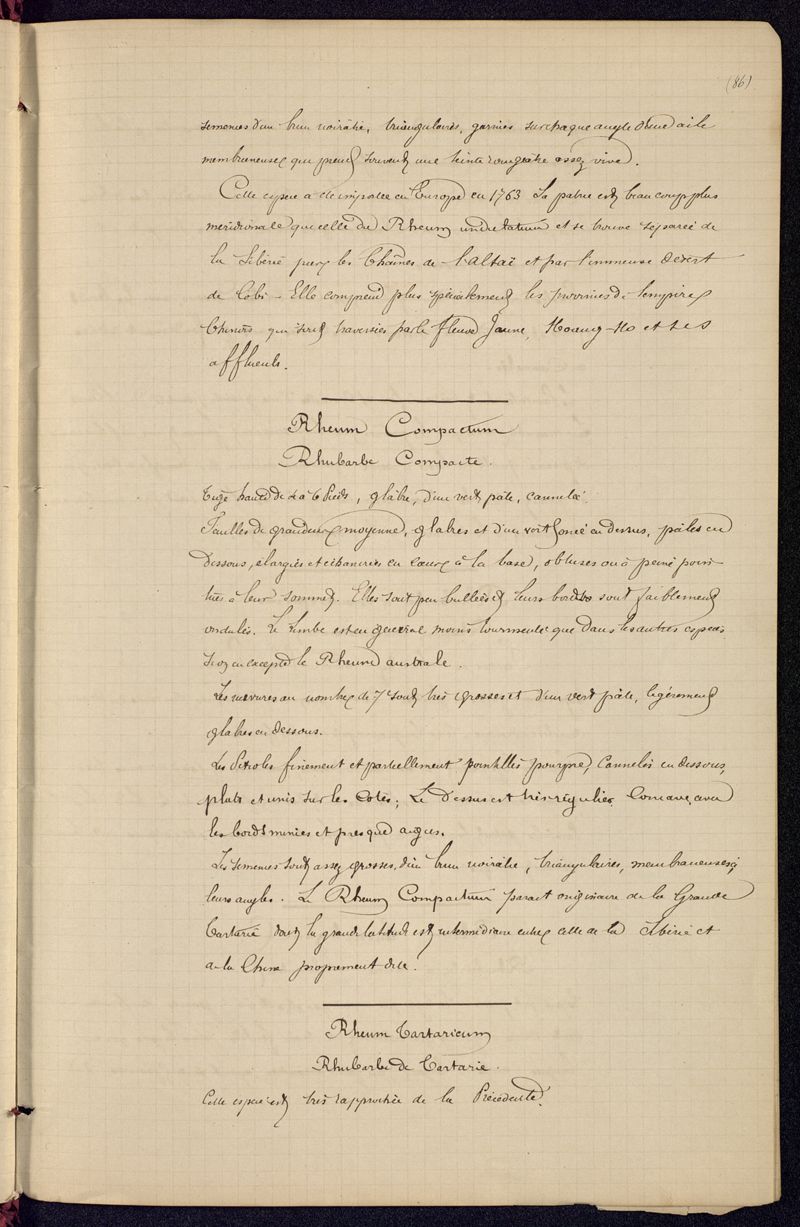 (86)
semences d'un brun noirâtre, triangulaires, garnies sur chaque angle d'une aile
membraneuse qui prend souvent une teinte rougeatre assez vive.
Cette espece a été importee en Europe en 1763 Sa patrie est beaucoup plus
meridionale que celle du Rheum undulatum et se trouve separee de
la Siberie par les Chaînes de l'altaï et par l'immense desert
de Cobi - Elle comprend plus specialement les provinces de l'empire
Chinois qui sont traversees par le fleuve Jaune, Hoang-Ho et ses
affluents.
Rheum Compactum
Rhubarbe Compacte.
Tige haute de 4 a 6 Pieds, glâbre, d'un vert pâle, cannelée.
Feuilles de grandeur moyenne, glabres et d'un vert foncé en dessus, pâles en
Dessous, elargies et echancrées en coeur à la base, obtuses ou à peine poin-
tue à leur sommet. Elles sont peu bullées et leurs bords sont faiblement
ondulés. Le Limbe est en general moins tourmenté que dans les autres especes
si on en excepte le Rheum australe.
Les nervures au nombre de 7 sont très grosses et d'un vert pâle, légèrement
glabres en dessous.
Les Petioles finement et partiellement pointillés pourpre, Cannelés en dessous,
plats et unis sur les Cotés; Le Dessus est très régulier Concave avec
les bords minces et presque aigus.
Les semences sont assez grosses, d'un brun noirâtre, triangulaires, membraneuses à
leurs angles. Le Rheum Compactum parait originaire de la Grande
Tartarie dont la grande latitude est intermédiaire entre celle de la Sibérie et
de la Chine proprement dite.
Rheum Tartaricum
Rhubarbe de Tartarie.
Cette espece est très rapprochée de la Précédente.